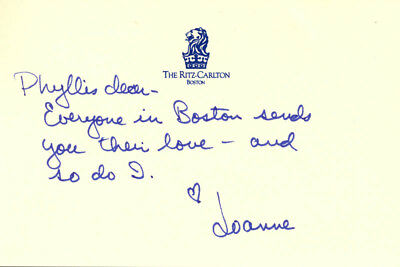 THE RITZ-CARLTON
BOSTON
Phyllis dear-
Everyone in Boston sends
you their love - and
so do I.
♡ Joanne